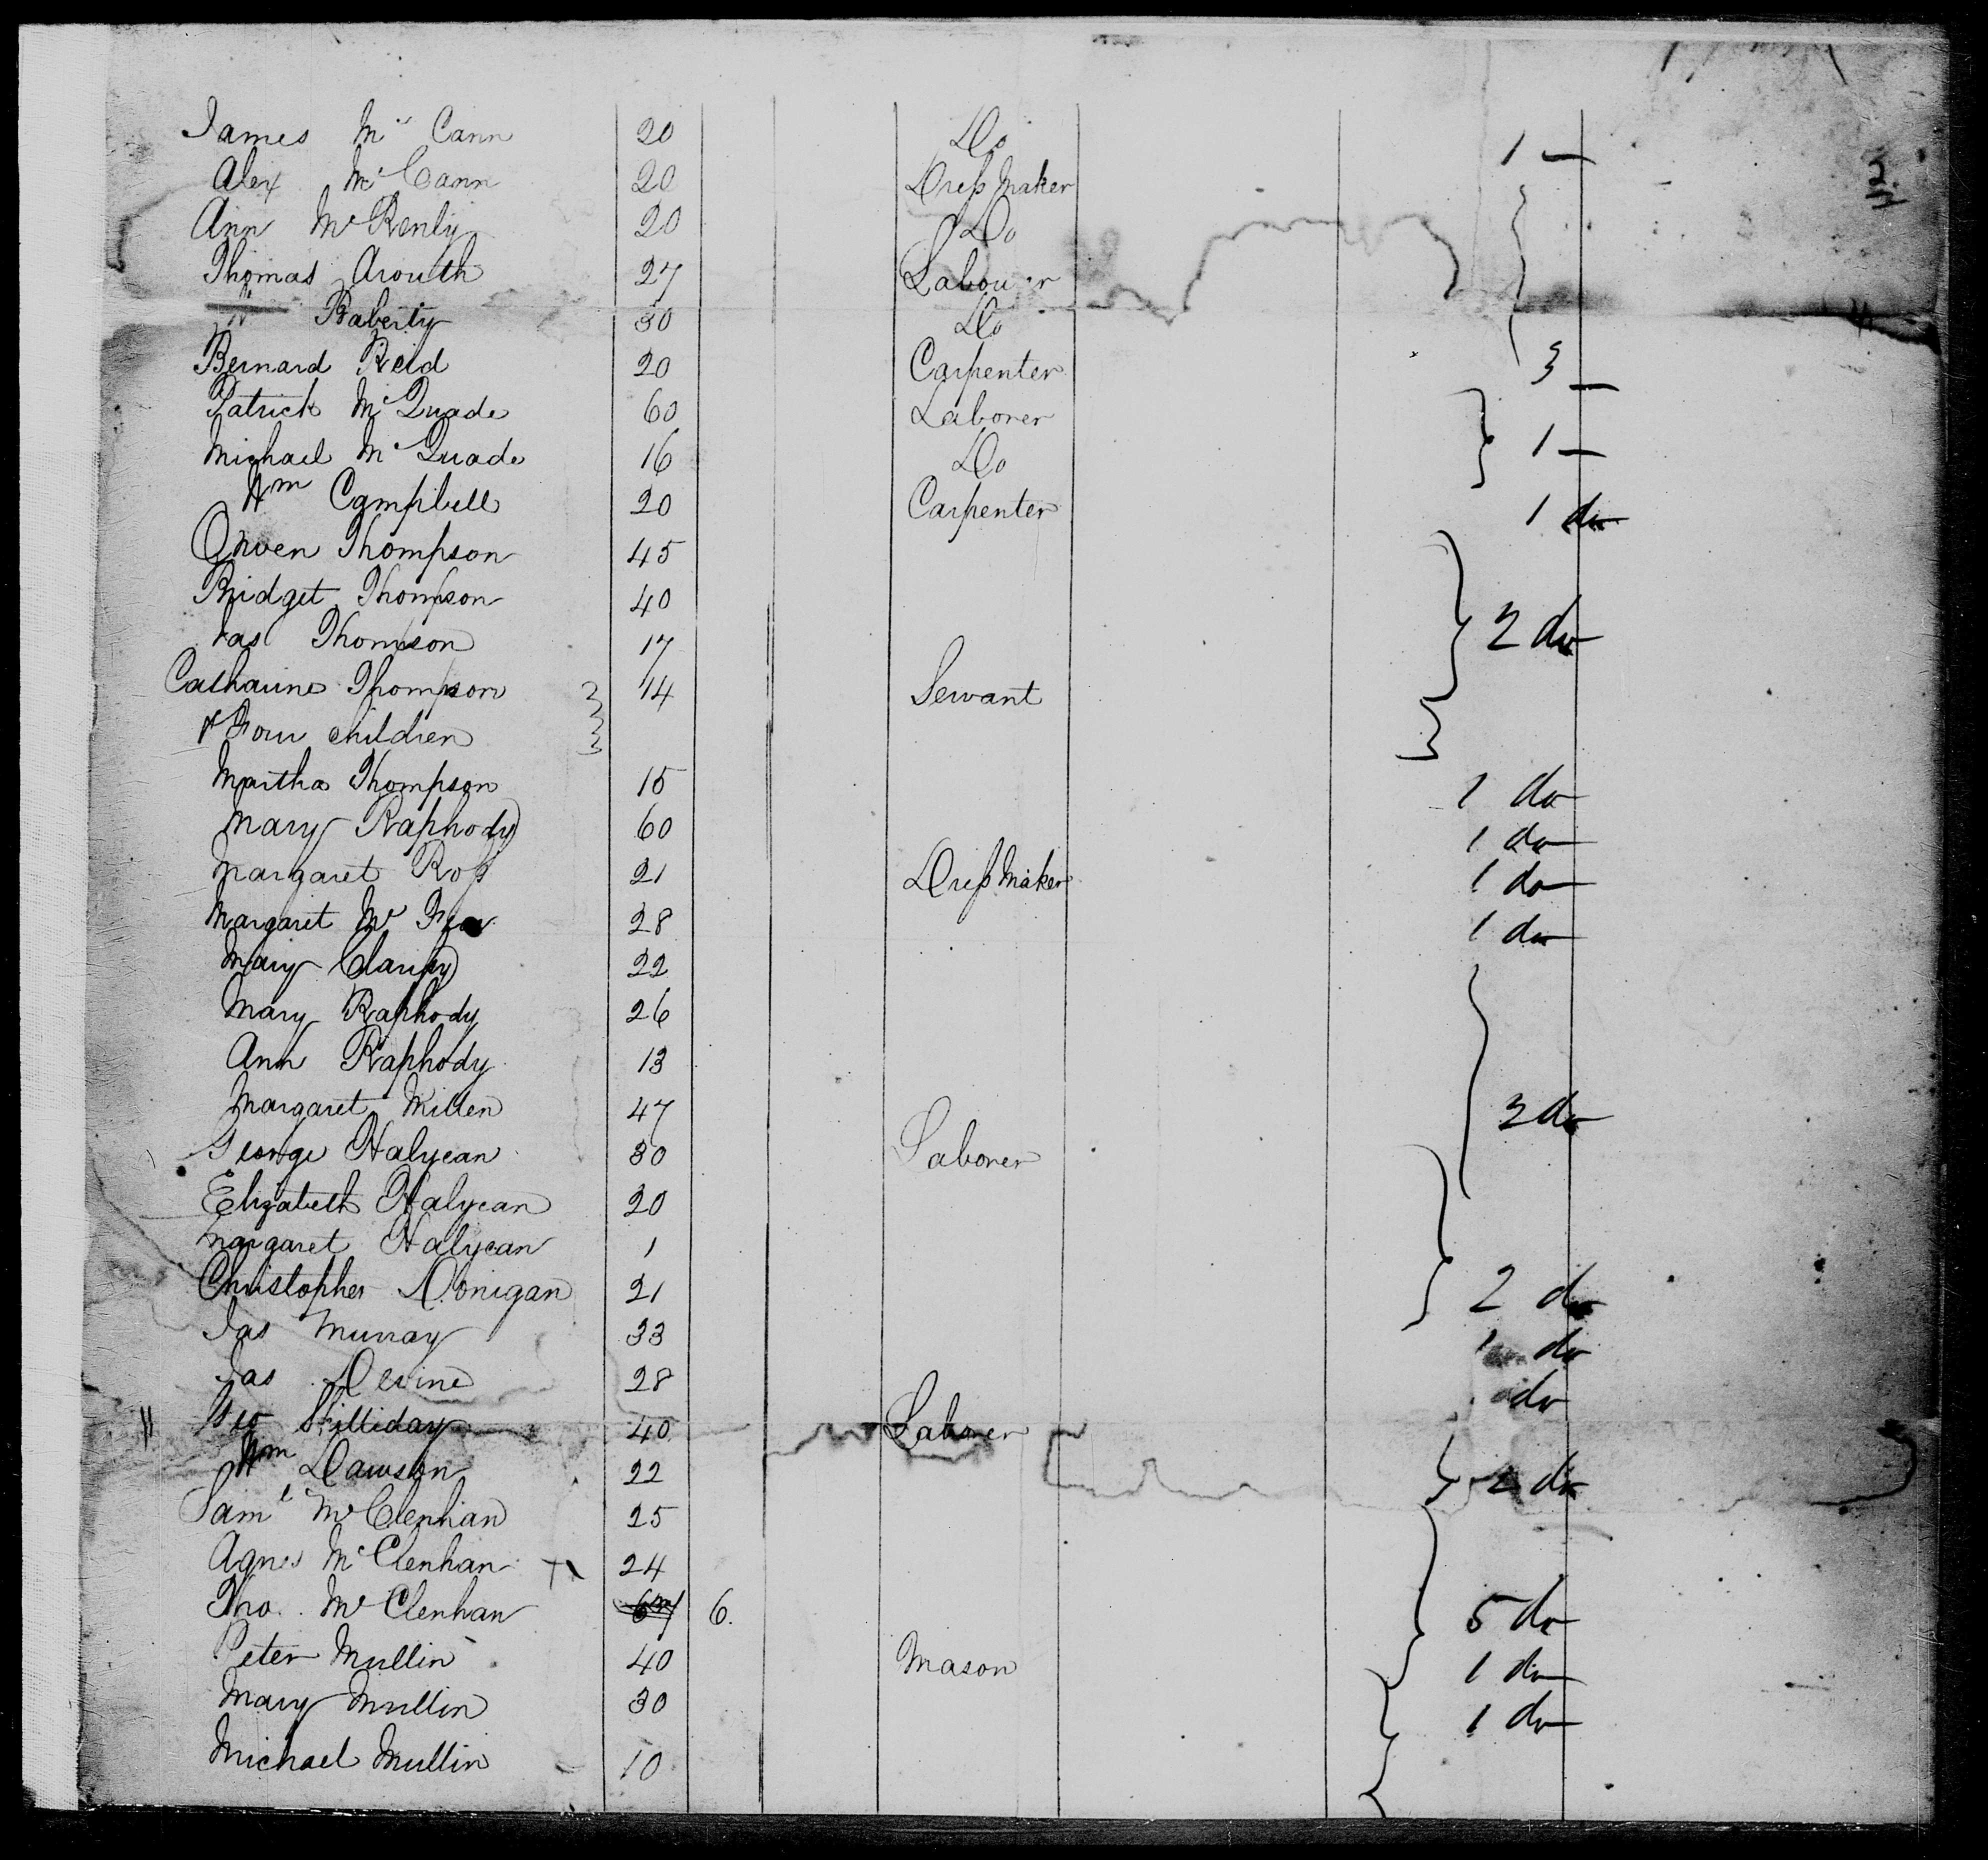 James Mc Cann 20 Do 1 —
Alex Mc Cann 20 Dress Maker
Ann McRenly 20 Do
Thomas Arouth 27 Labourer
Baberty 30 Do
Bernard Reid 20 Carpenter 3 —
Patrick McQuade 60 Laborer
Michael McQuade 16 Do 1 —
Wm Campbell 20 Carpenter 1 do
Owen Thompson 45
Bridget Thompson 40
Jas Thompson 17 2 do
Catharine Thompson 14 Servant
& Four children
Martha Thompson 15 1 do
Mary Raphody 60 1 do
Margaret Ross 21 Dress Maker 1 do
Margaret Mc 28 1 do
Mary 22
Mary Raphody 26
Ann Raphody 13
Margaret Millen 47 3 do
George Halycan 30 Laborer
Elizabeth Halycan 20
Margaret Halycan 1
Christopher Donigan 21 2 do
Jas Murray 33 1 do
Jas Devine 28 do
Geo Stilliday 40 Laborer
Wm Dawson 22 2 do
Saml McClenhan 25
Agnes McClenhan 24
Tho. McClenhan 6 5 do
Peter Mullin 40 Mason 1 do
Mary Mullin 30 1 do
Michael Mullin 10